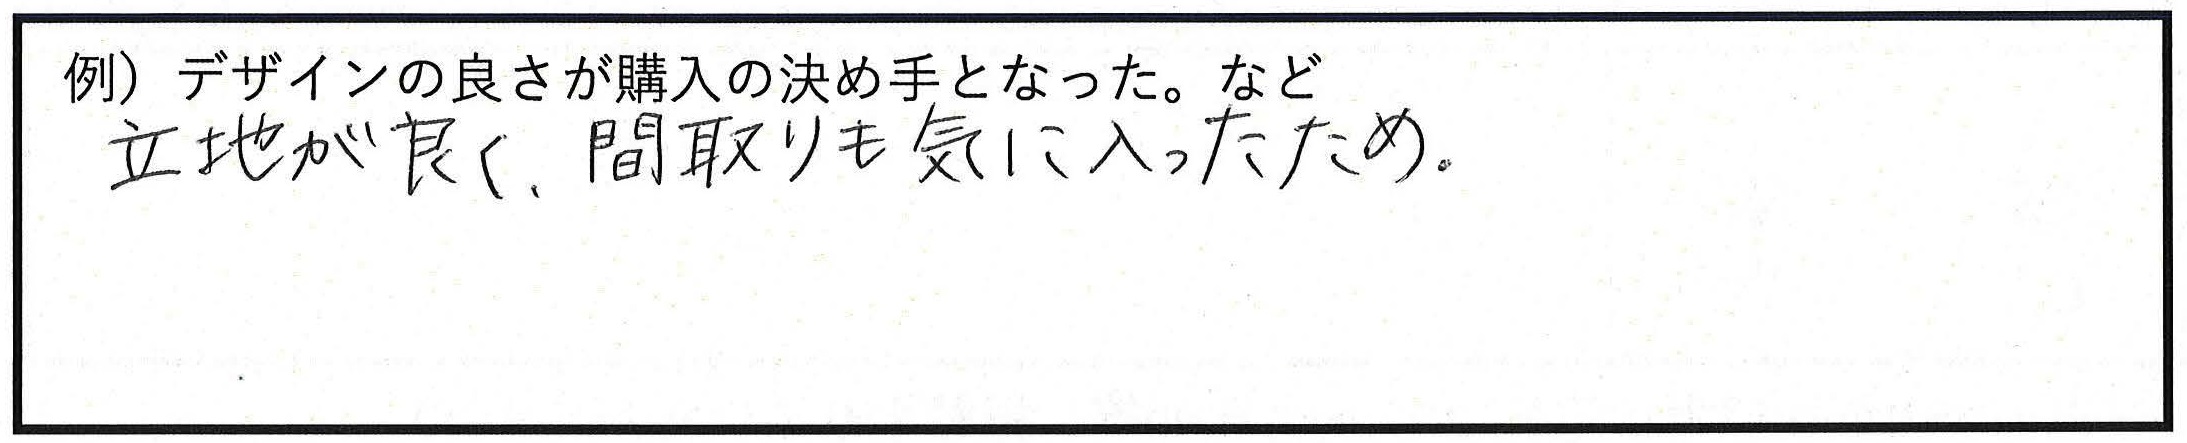 例）デザインの良さが購入の決め手となった。など
立地が良く、間取りも気に入ったため。